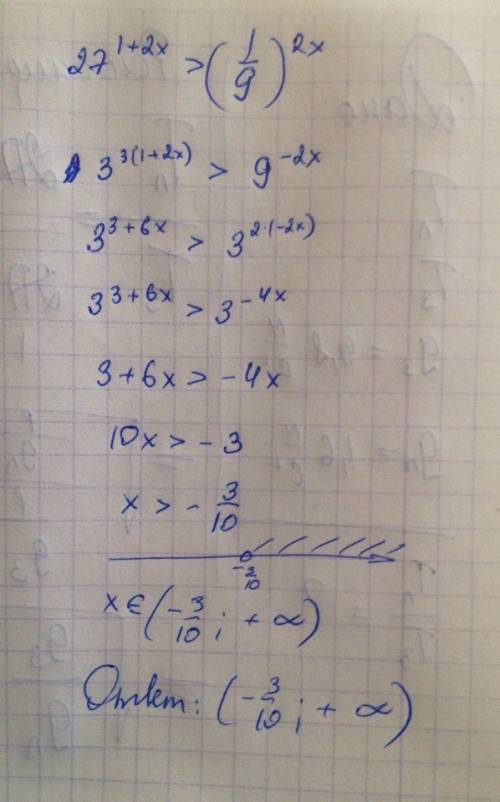 27^{1+2x} > (1/9)^{2x}
3^{3(1+2x)} > 9^{-2x}
3^{3+6x} > 3^{2·(-2x)}
3^{3+6x} > 3^{-4x}
3+6x > -4x
10x > -3
x > -3/10
-3/10
x ∈ (-3/10; +∞)
Ответ: (-3/10; +∞)